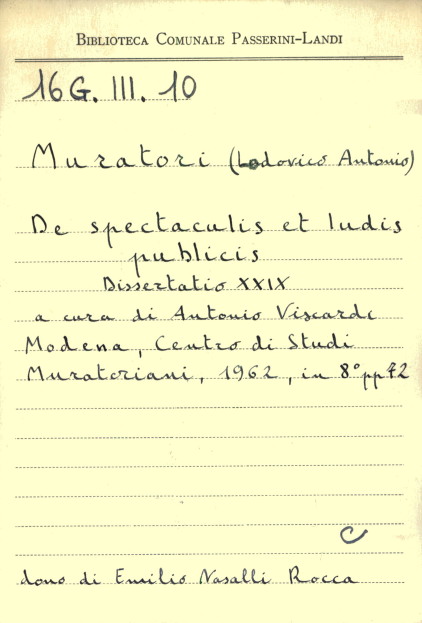 BIBLIOTECA COMUNALE PASSERINI-LANDI
16G. III. 10
Muratori (Lodovico Antonio)
De spectaculis et ludis
publicis
Dissertatio XXIX
a cura di Antonio Viscardi
Modena, Centro di Studi
Muratoriani, 1962, in 8° pp
C
dono di Emilio Nasalli Rocca